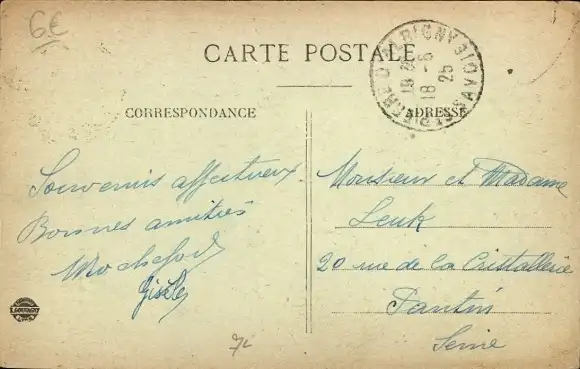 6€
CARTE POSTALE
CORRESPONDANCE
ADRESSE
ST PIERRE D'ALBIGNY SAVOIE
18 -8
25
Souvenirs affectueux
Bonnes amitiés
Gisèle
Monsieur et Madame
Leuk
20 rue de la Cristallerie
Pantin
Seine